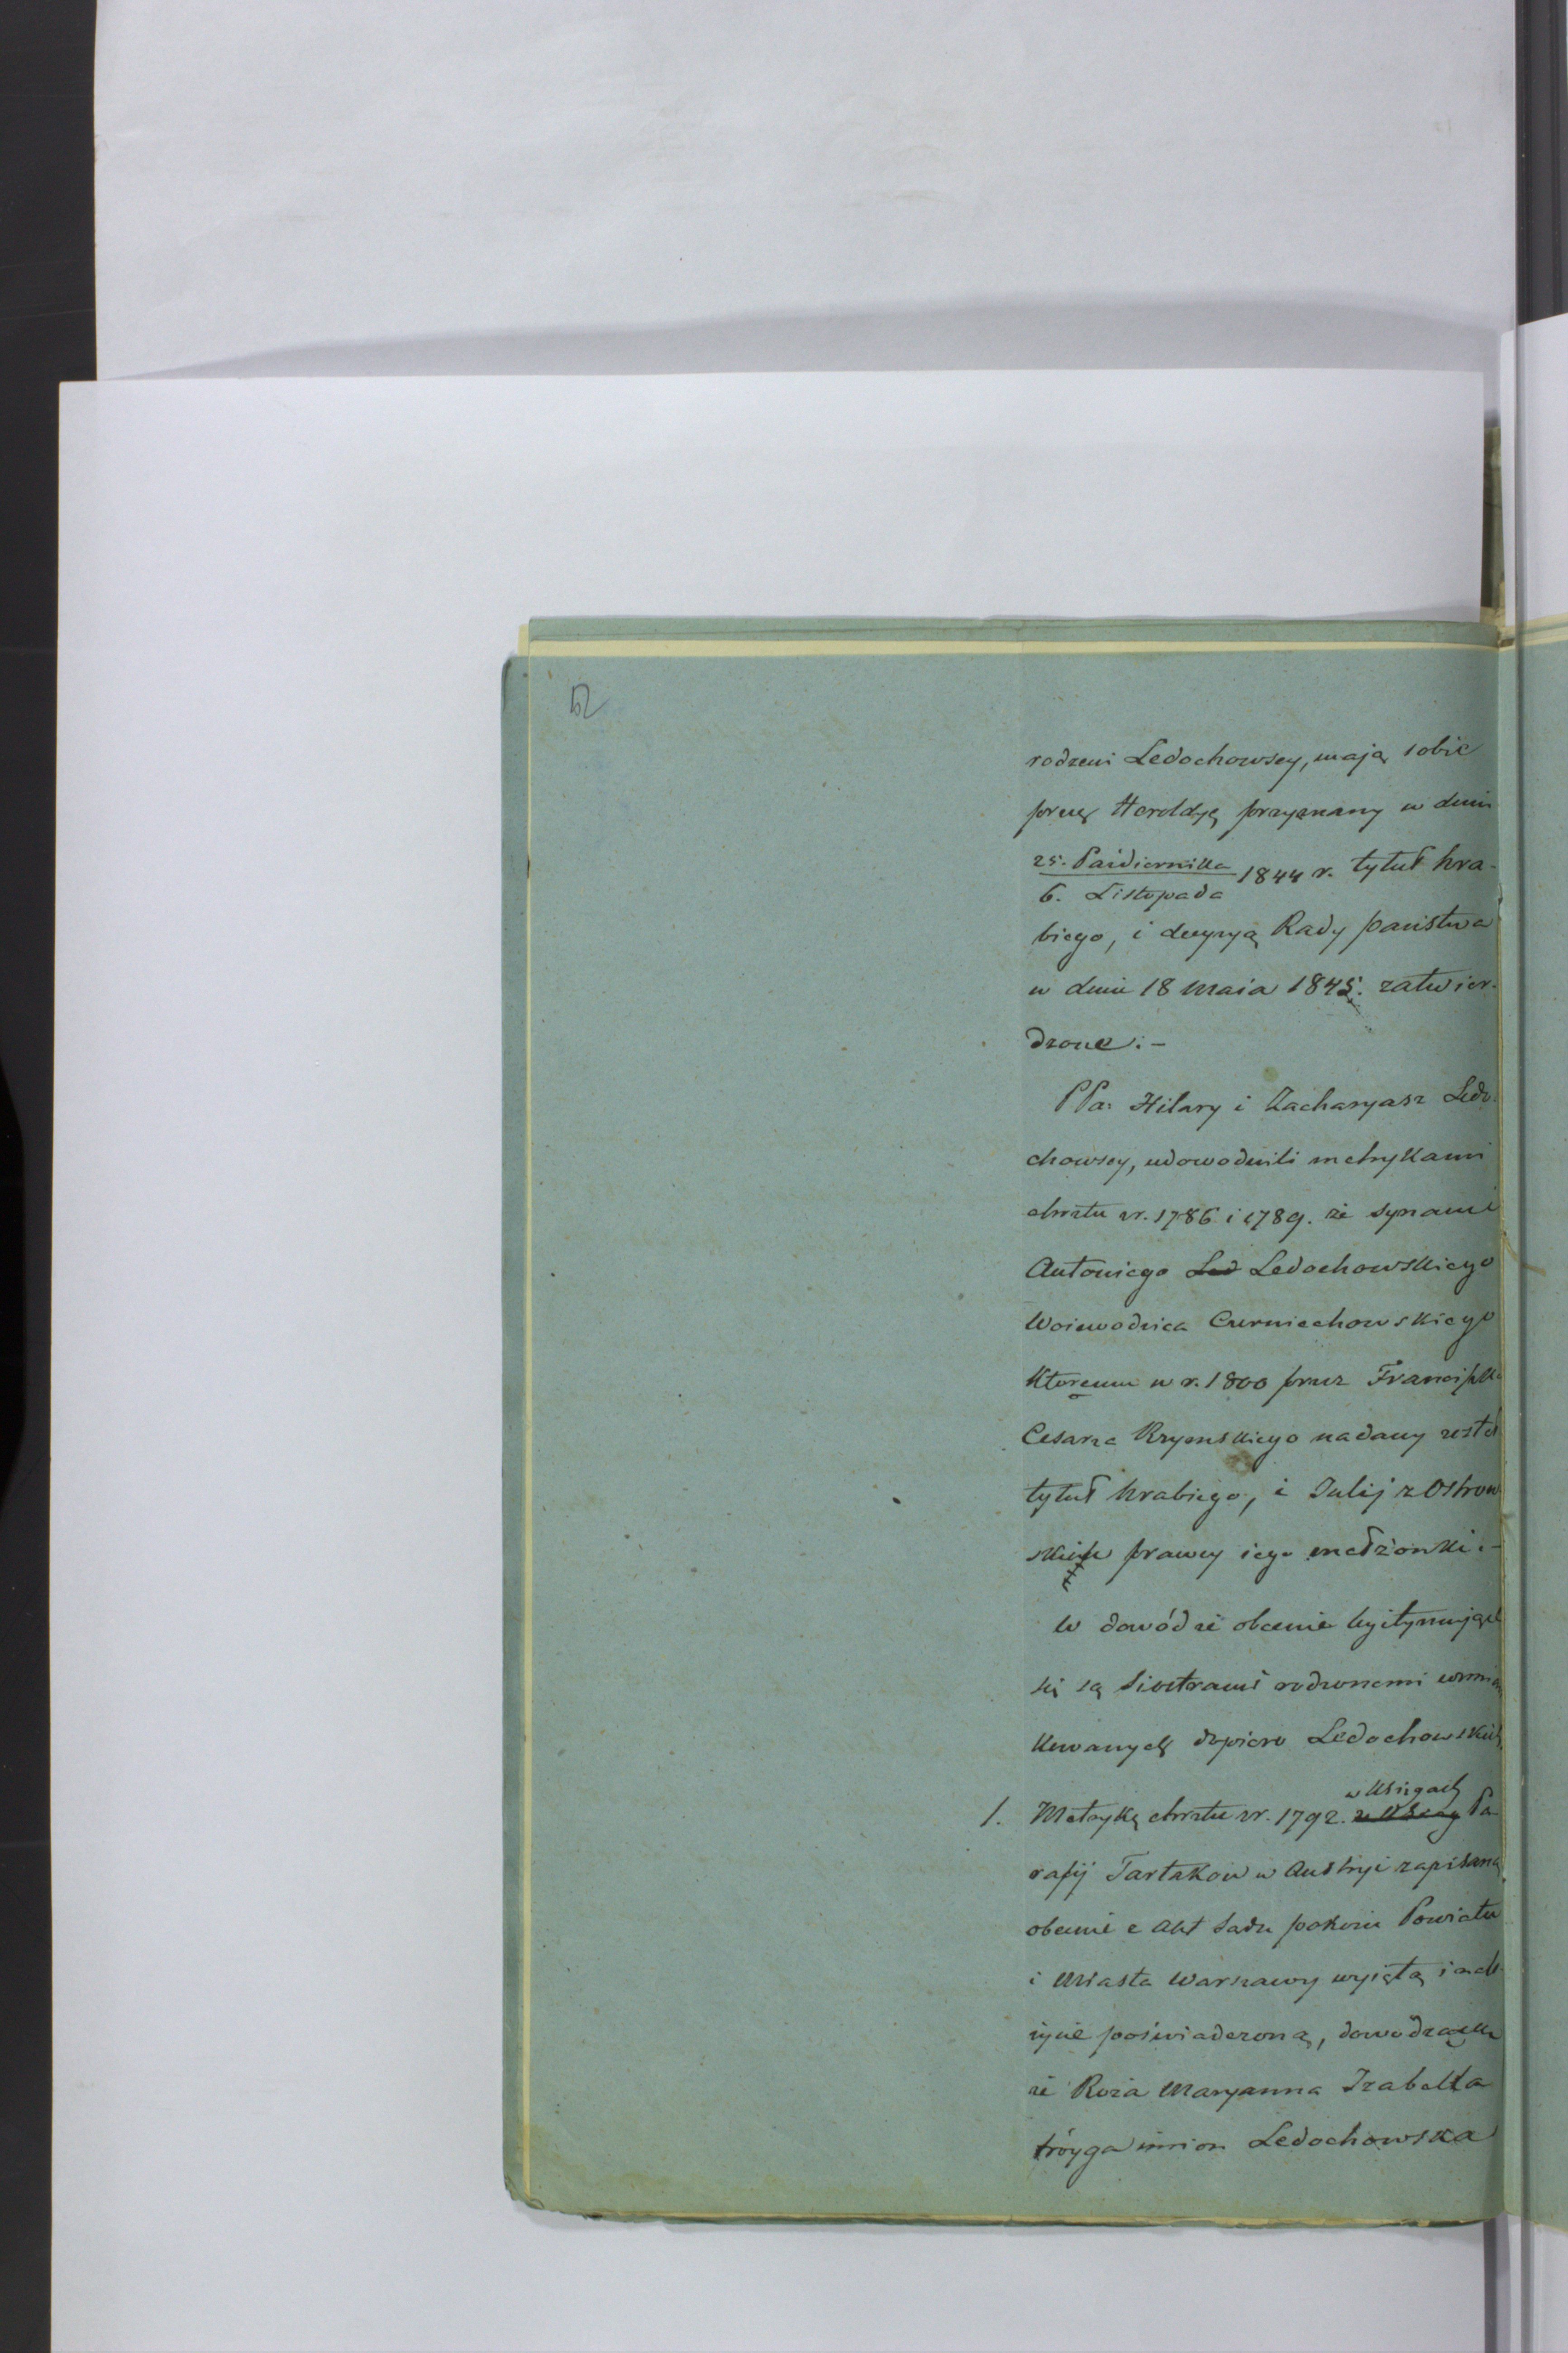 52
rodzeni Ledochowscy, mają sobie
przez Heroldyę przyznany w dniu
25. Października
6. Listopada 1844 r. tytuł hra-
biego, i decyzyą Rady państwa
w dniu 18 Maia 1845. zatwier-
dzone.-
PPa: Hilary i Zacharyasz Ledo-
chowscy, udowodnili metrykami
chrztu zr. 1786 i 1789. że synami
Antoniego Led Ledochowskiego
Woiewodzica Czerniechowskiego
któremu w r. 1800 przez Franciszka
Cesarza Rzymskiego nadany został
tytuł hrabiego, i Julij z Ostrow
skich prawey iego małżonki.-
W dowód że obecnie legitymując
się są Siostrami rodzonemi wzmian
kowanych dopiero Ledochowskich
w Księgach
1. Metrykę chrztu zr. 1792. Pa-
rafij Tartakow w Austryi zapisaną
obecnie z Akt Sadu pokoiu Powiatu
i Miasta Warszawy wyiętą i
poświadczoną,
że Roża Maryanna Izabella
tróyga imion Ledochowska